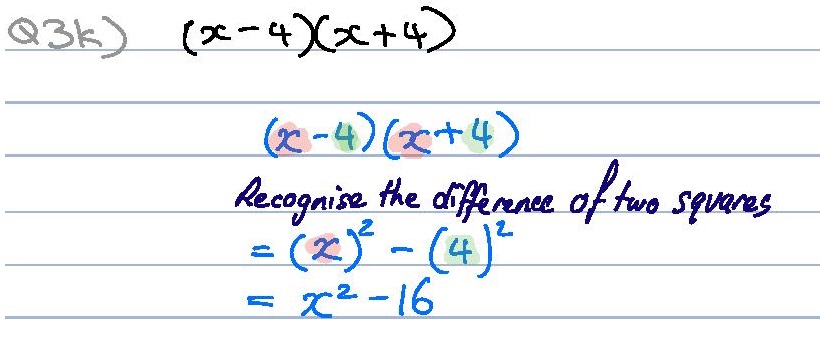 Q3k) (x-4)(x+4)
(x-4)(x+4)
Recognise the difference of two squares
= (x)² - (4)²
= x² - 16